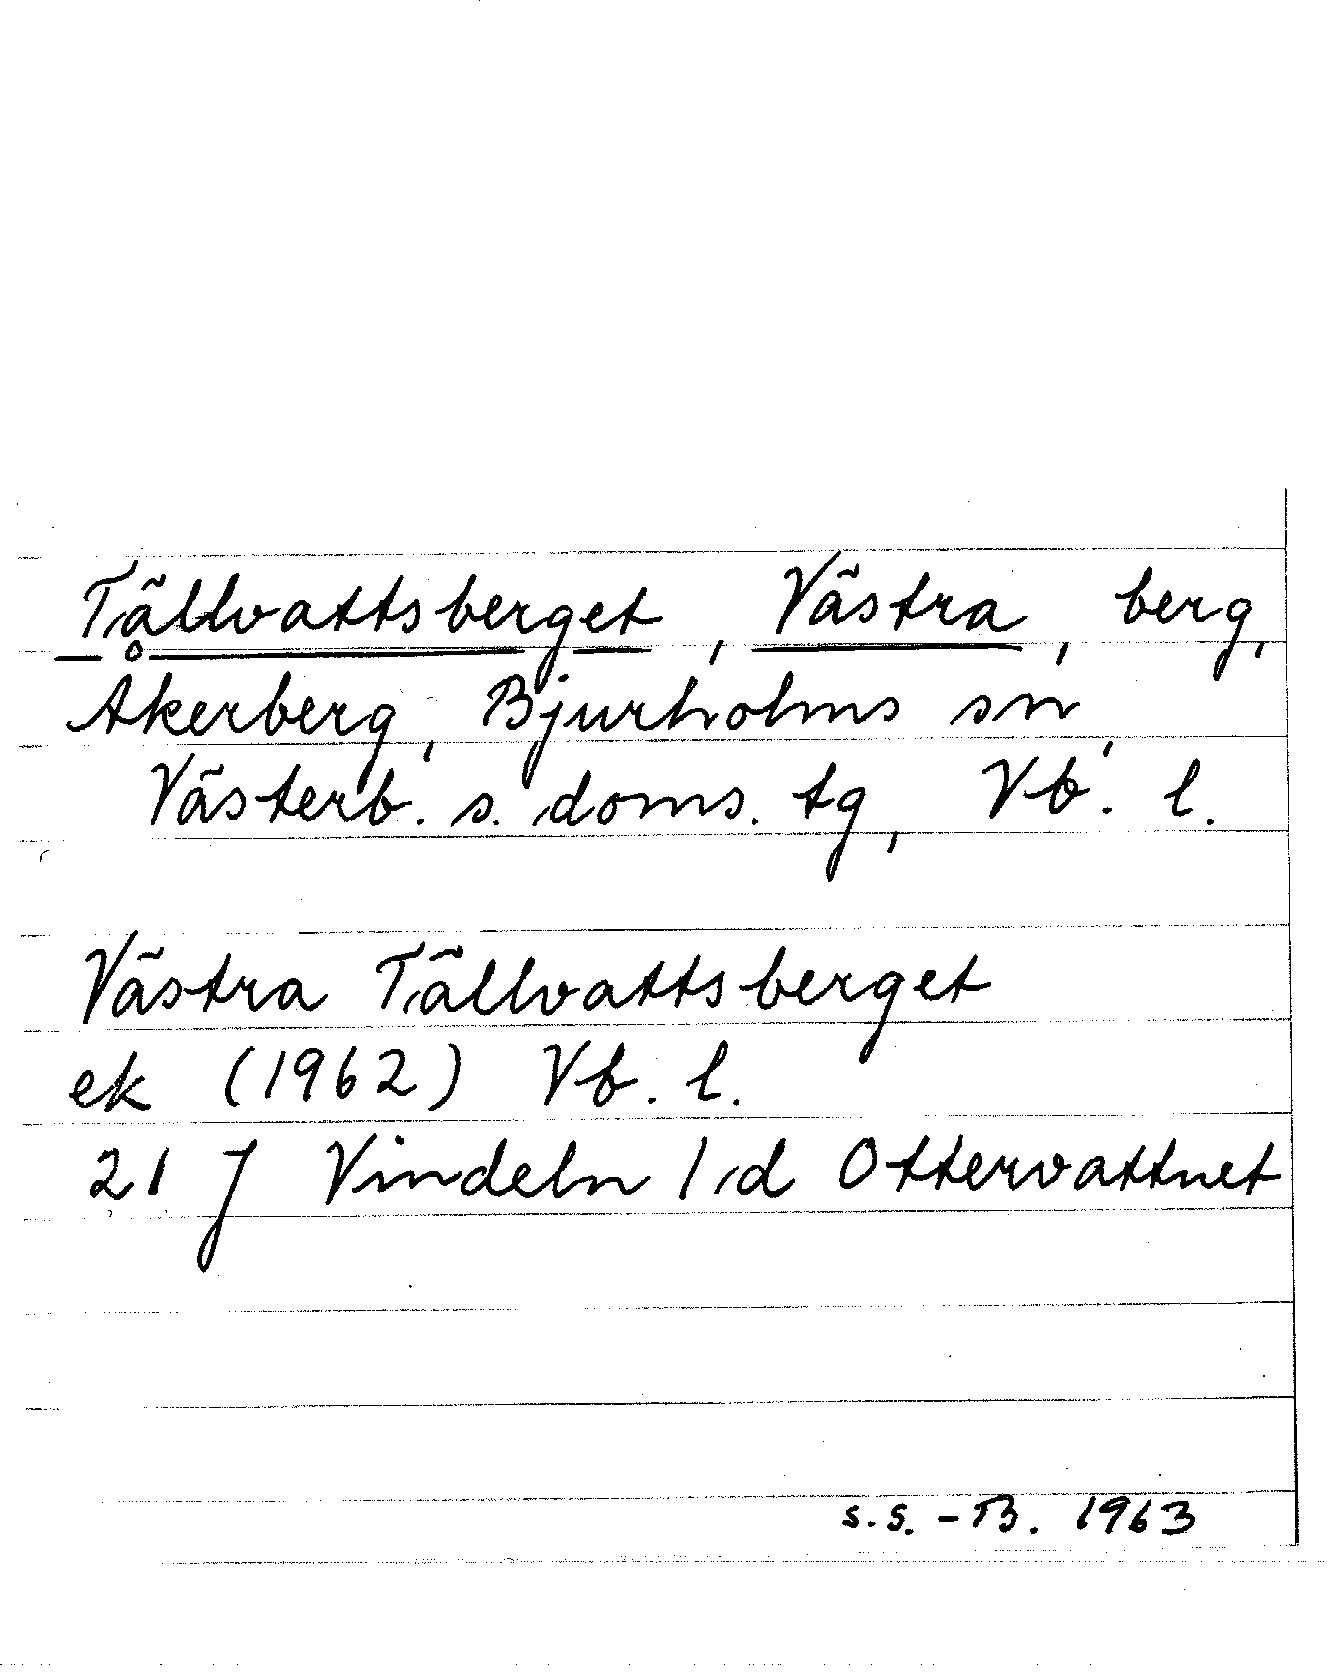 Tällvattsberget, Västra, berg,
Åkerberg, Bjurholms sn,
Västerb. s. doms. tg, Vb. l.
Västra Tällvattsberget
ek (1962) Vb. l.
21 J Vindeln 1 d Ottervattnet
s.s.-B. 1963